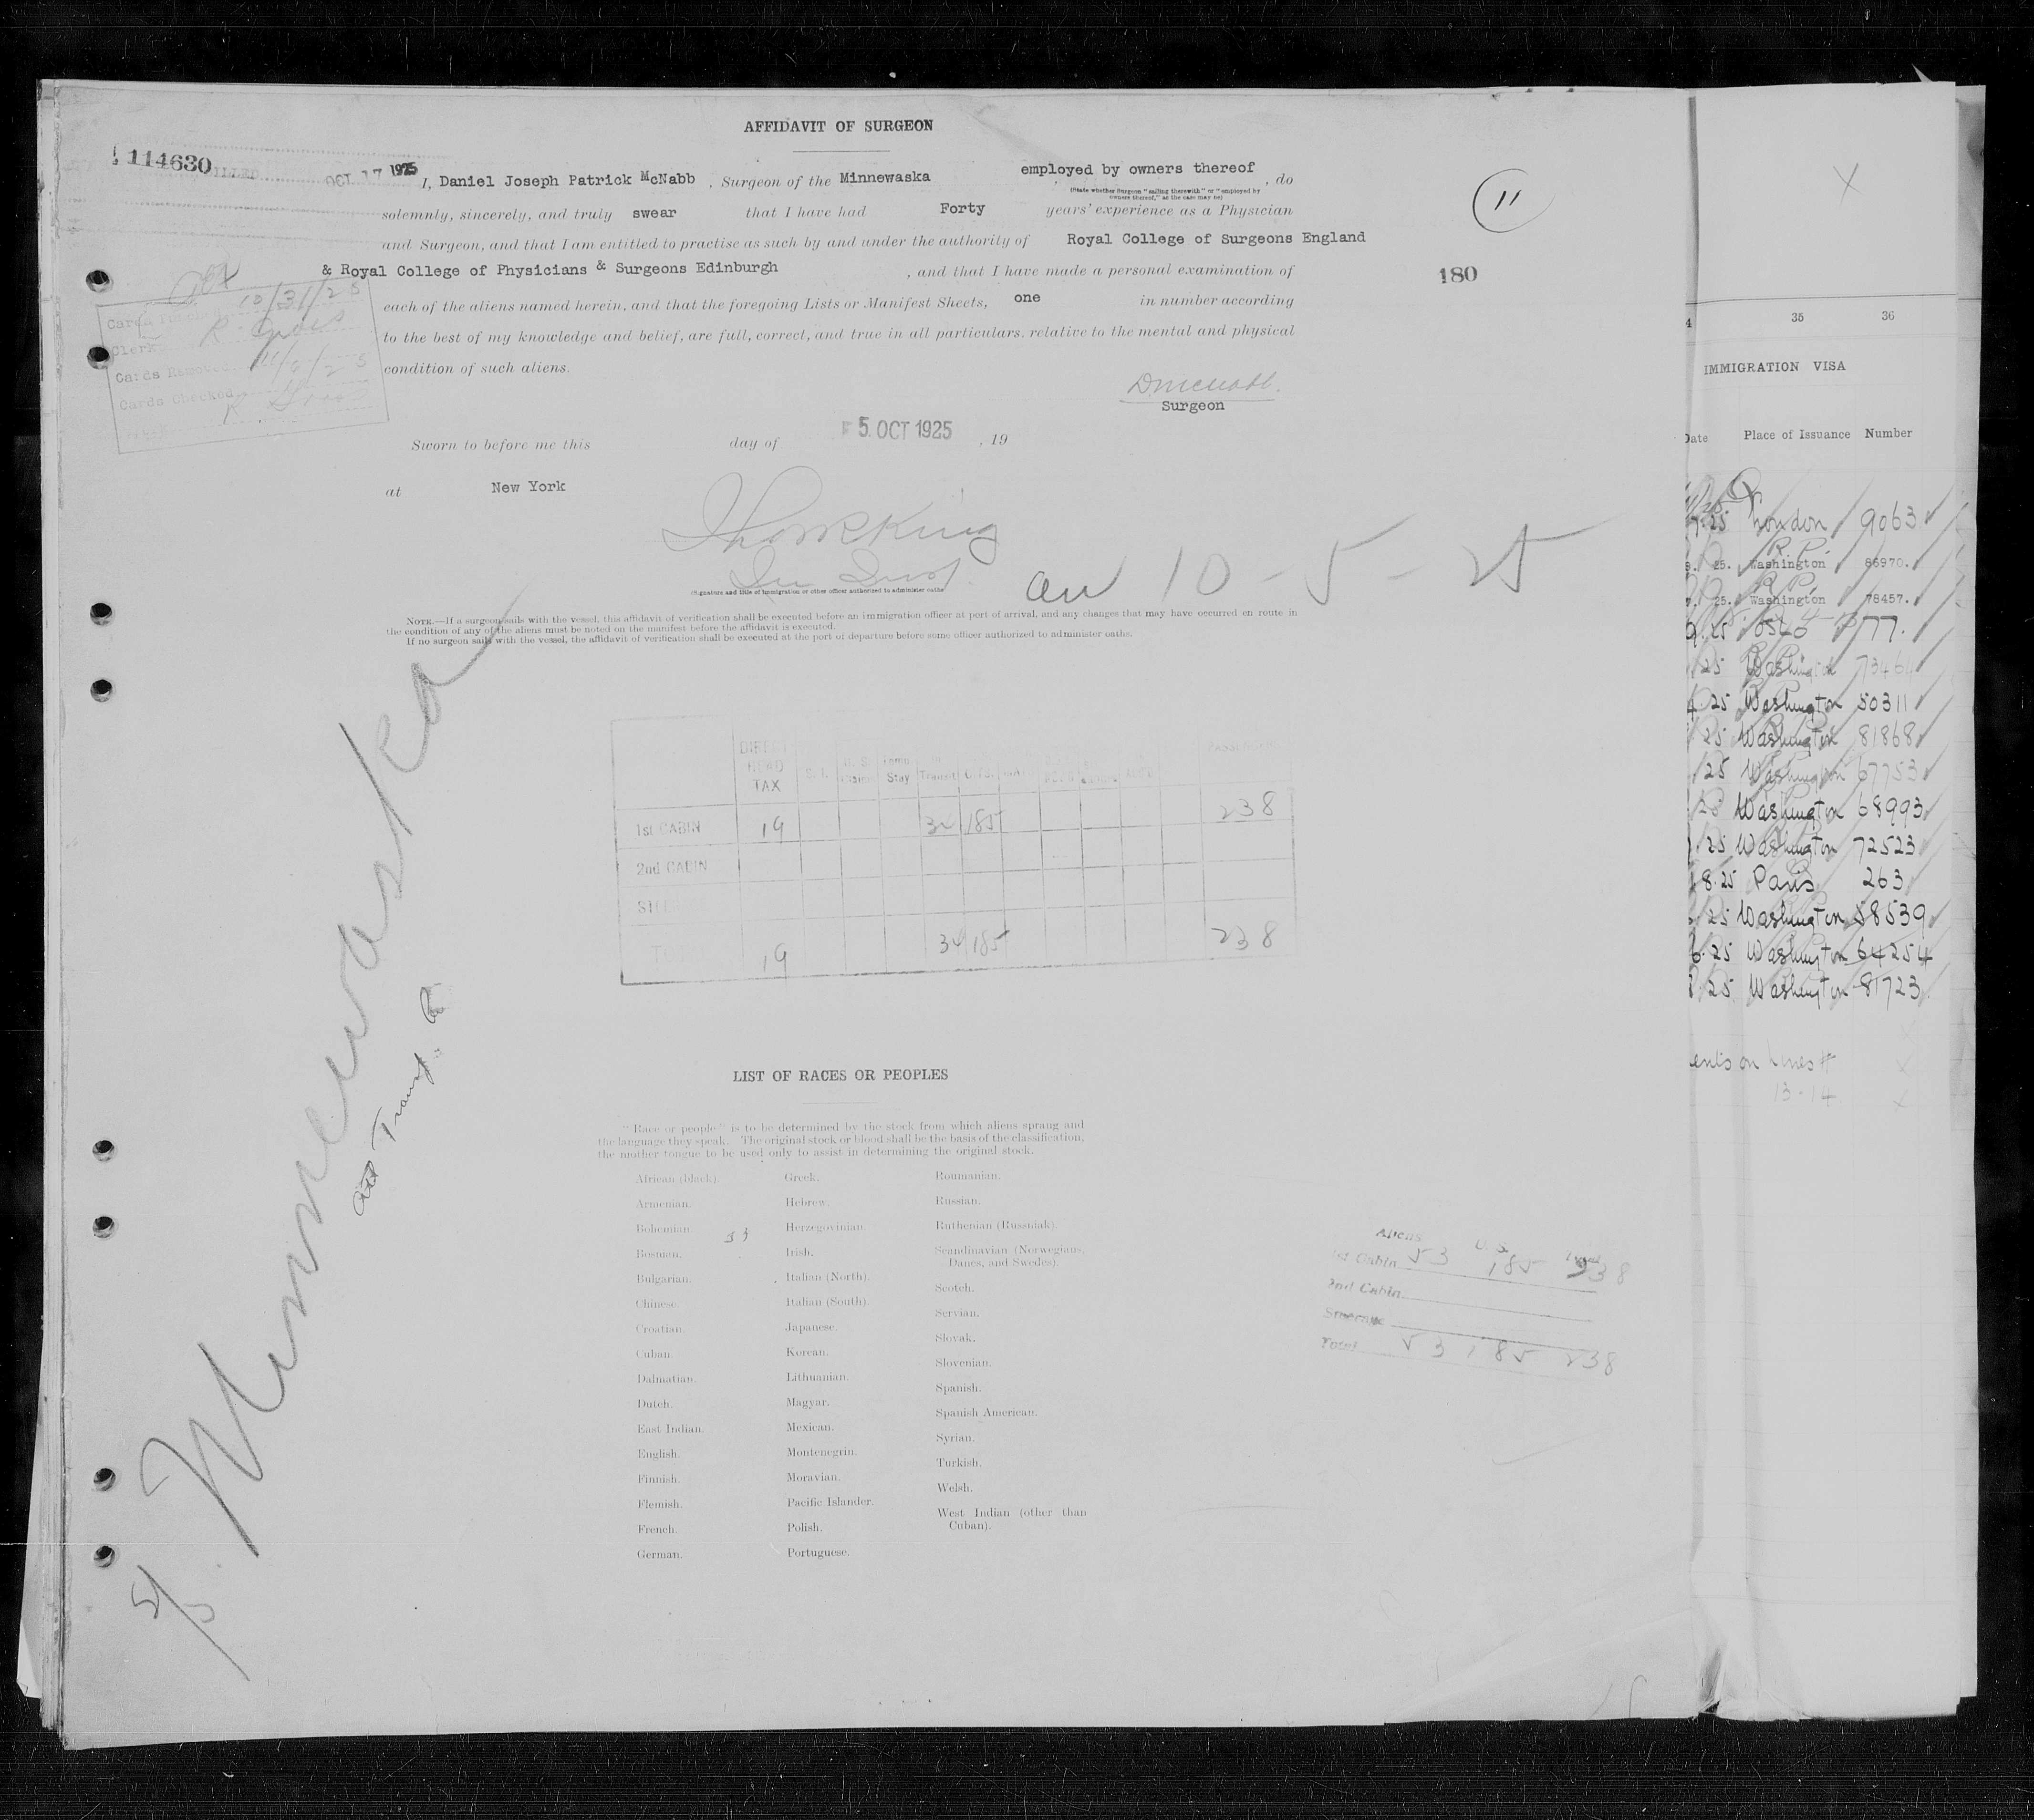 AFFIDAVIT OF SURGEON
114630
OCT 17 1925
I, Daniel Joseph Patrick McNabb , Surgeon of the Minnewaska employed by owners thereof , do
(State whether Surgeon "sailing therewith" or "employed by
owners thereof," as the case may be)
11
solemnly, sincerely, and truly swear that I have had Forty years' experience as a Physician
and Surgeon, and that I am entitled to practise as such by and under the authority of Royal College of Surgeons England
& Royal College of Physicians & Surgeons Edinburgh , and that I have made a personal examination of
180
each of the aliens named herein, and that the foregoing Lists or Manifest Sheets, one in number according
to the best of my knowledge and belief, are full, correct, and true in all particulars. relative to the mental and physical
condition of such aliens.
10/31/25
Clerk
Cards Removed 11/6/25
Cards Checked
DMcNabb.
Surgeon
Sworn to before me this day of 5 OCT 1925 , 19
at New York
arr 10-5-25
(Signature and title of immigration or other officer authorized to administer oaths
NOTE.—If a surgeon sails with the vessel, this affidavit of verification shall be executed before an immigration officer at port of arrival, and any changes that may have occurred en route in
the condition of any of the aliens must be noted on the manifest before the affidavit is executed.
If no surgeon sails with the vessel, the affidavit of verification shall be executed at the port of departure before some officer authorized to administer oaths.
S/S Minnewaska
DIRECT HEAD TAX
Stay Transit
1st CABIN 19 34 185 238
2nd CABIN
19 34 185 238
LIST OF RACES OR PEOPLES
"Race or people" is to be determined by the stock from which aliens sprang and
the language they speak. The original stock or blood shall be the basis of the classification,
the mother tongue to be used only to assist in determining the original stock.
African (black).
Armenian.
Bohemian.
Bosnian.
Bulgarian.
Chinese.
Croatian.
Cuban.
Dalmatian.
Dutch.
East Indian.
English.
Finnish.
Flemish.
French.
German.
Greek.
Hebrew.
Herzegovinian.
Irish.
Italian (North).
Italian (South).
Japanese.
Korean.
Lithuanian.
Magyar.
Mexican.
Montenegrin.
Moravian.
Pacific Islander.
Polish.
Portuguese.
Roumanian.
Russian.
Ruthenian (Russniak).
Scandinavian (Norwegians,
Danes, and Swedes).
Scotch.
Servian.
Slovak.
Slovenian.
Spanish.
Spanish American.
Syrian.
Turkish.
Welsh.
West Indian (other than
Cuban).
Aliens U.S. Total
1st Cabin 53 185 238
2nd Cabin
Steerage
Total 53 185 238
35 36
IMMIGRATION VISA
Date Place of Issuance Number
25 London 9063
25. Washington 86970.
25. Washington 78457.
9.25 Oslo 77.
25 Washington 73464
25 Washington 50311
25 Washington 81868
25 Washington 67753
25 Washington 68993
25 Washington 72523
8.25 Paris 263
25 Washington 58539
6.25 Washington 64254
25 Washington 81723
ents on Lines #
13-14